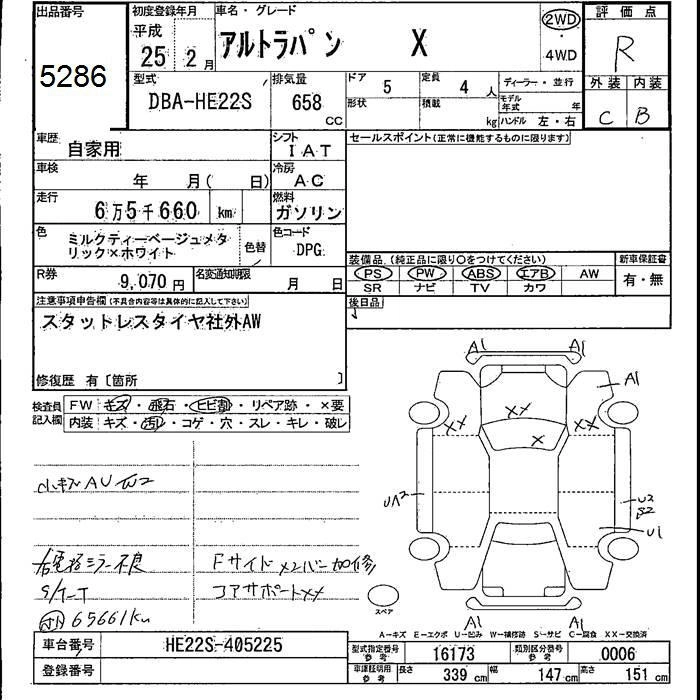 出品番号 初度登録年月 車名・グレード 評価点
5286
平成 25年 2月
アルトラパン X
2WD・4WD
R
型式 DBA-HE22S
排気量 658 CC
ドア 5
定員 4人
形状 積載 kg
ディーラー・並行
モデル年式 年
ハンドル 左・右
外装 内装
C B
車歴 自家用
シフト IAT
セールスポイント(正常に機能するものに限ります)
車検 年 月( 日)
冷房 AC
走行 6万5千660 km
燃料 ガソリン
色 ミルクティーベージュメタリック×ホワイト
色替
色コード DPG
装備品(純正品に限り○をつけてください) 新車保証書
PS PW ABS エアB AW 有・無
SR ナビ TV カワ
R券 9,070円
名変通知期限 月 日
後日品
注意事項申告欄(不具合内容等は具体的に記入して下さい)
スタットレスタイヤ社外AW
修復歴 有〔箇所 〕
検査員記入欄
FW キズ・飛石・ヒビ割・リペア跡・×要
内装 キズ・汚れ・コゲ・穴・スレ・キレ・破レ
小キズAU
Fサイドメンバー加修
コアサポートXX
S/T-T
65661km
A1 A1
A1
XX XX XX
X
UA2
U2
B2
U1
A1 A1
スペア
A-キズ E-エクボ U-凹み W-補修跡 S-サビ C-腐食 XX-交換済
車台番号 HE22S-405225
登録番号
型式指定番号参考 16173 類別区分番号参考 0006
車庫証明用参考 長さ 339cm 幅 147cm 高さ 151cm